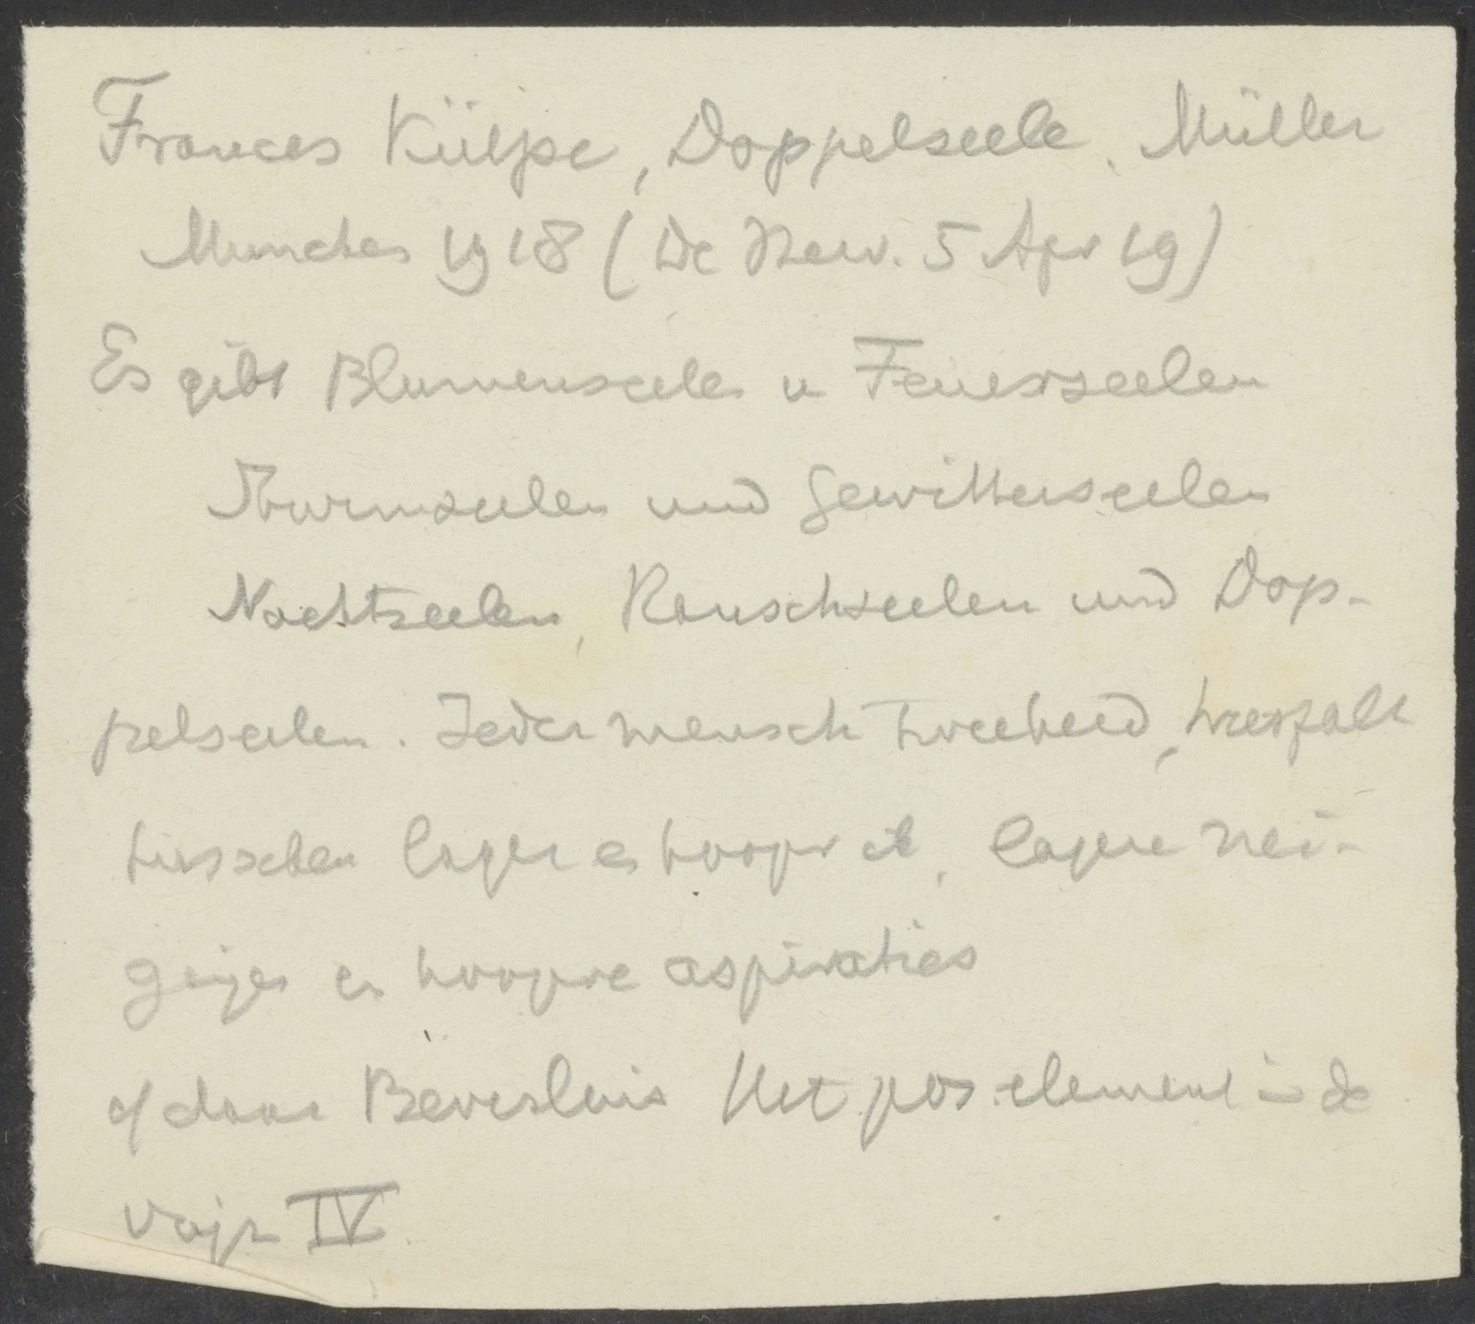 Frances Külpe, Doppelseele, Müller
Munchen 1918 (De Nieuw. 5 Apr 19)
Es gibt Blumenseelen u Feuerseelen
Sturmseelen und Gewitterseelen
Nachtseelen, Rauschseelen und Dop-
pelseelen. Ieder mensch tweeheid, tweespalt
tusschen lager en hooger ik, lagere nei-
gingen en hoogere aspiraties
cf daar Beversluis Het pos. element in de
IV